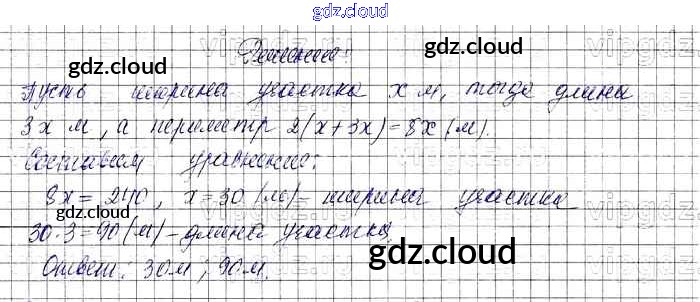 gdz.cloud
Решение:
Пусть ширина участка x м, тогда длина
3x м, а периметр 2(x+3x)=8x (м).
Составим уравнение:
8x = 240, x=30 (м) - ширина участка
30·3=90 (м) - длина участка.
Ответ: 30м ; 90м.
gdz.cloud
gdz.cloud
gdz.cloud
gdz.cloud
gdz.cloud